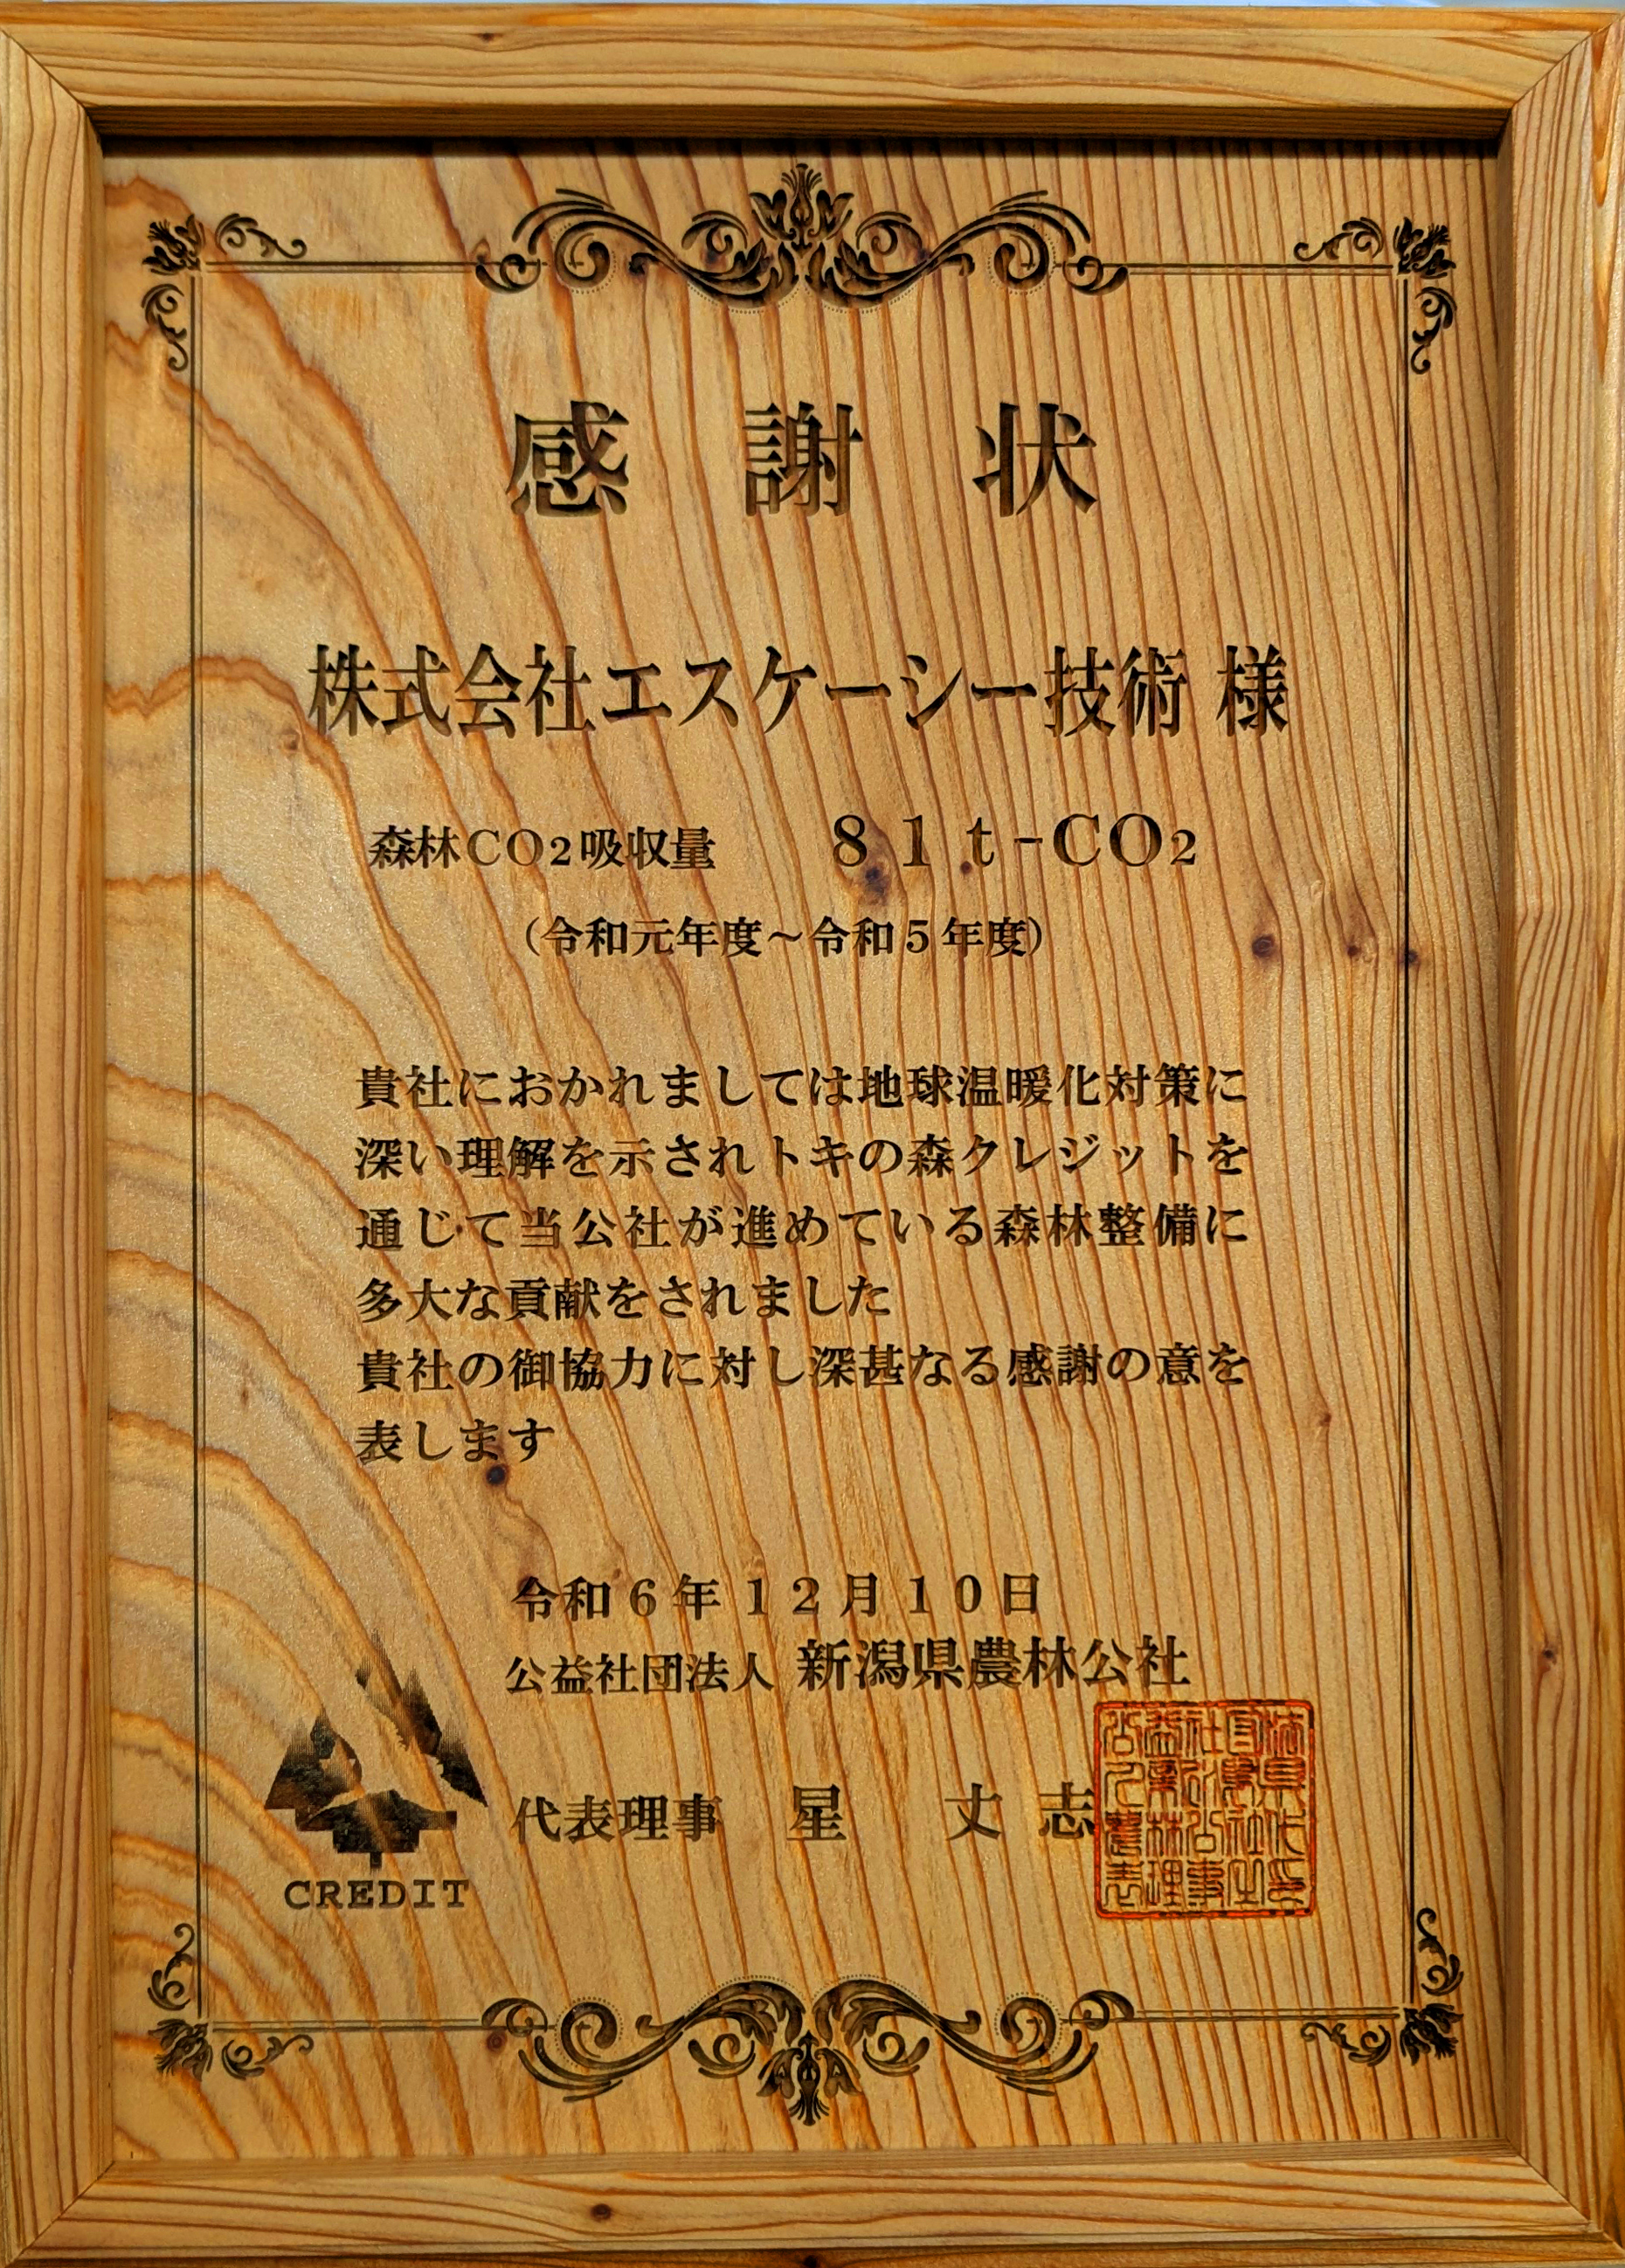 感謝状
株式会社エスケーシー技術 様
森林CO2吸収量 81t-CO2
(令和元年度～令和5年度)
貴社におかれましては地球温暖化対策に
深い理解を示されトキの森クレジットを
通じて当公社が進めている森林整備に
多大な貢献をされました
貴社の御協力に対し深甚なる感謝の意を
表します
令和6年12月10日
公益社団法人 新潟県農林公社
代表理事 星 丈志
CREDIT